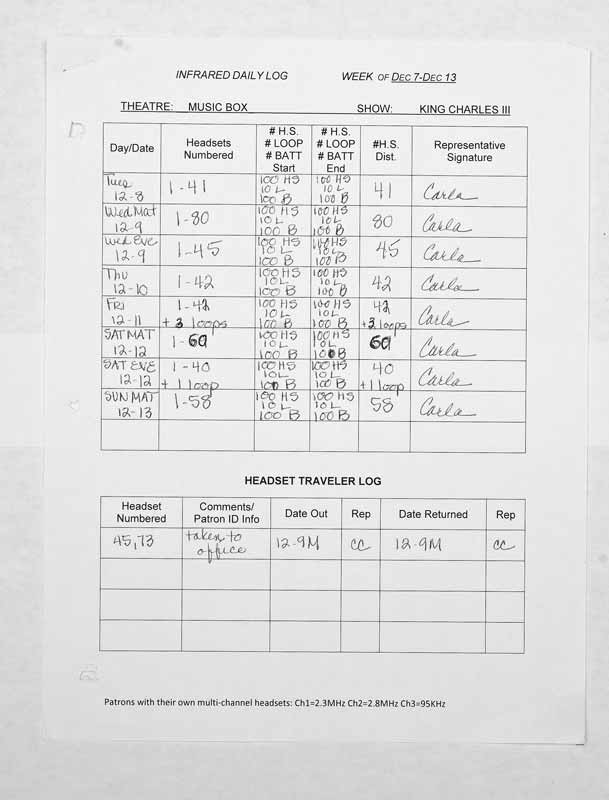 INFRARED DAILY LOG WEEK OF DEC 7-DEC 13
THEATRE: MUSIC BOX SHOW: KING CHARLES III
Day/Date Headsets Numbered # H.S. # LOOP # BATT Start # H.S. # LOOP # BATT End #H.S. Dist. Representative Signature
Tues 12-8 1-41 100 HS 10 L 100 B 100 HS 10 L 100 B 41 Carla
Wed Mat 12-9 1-80 100 HS 10 L 100 B 100 HS 10 L 100 B 80 Carla
Wed Eve 12-9 1-45 100 HS 10 L 100 B 100 HS 10 L 100 B 45 Carla
Thu 12-10 1-42 100 HS 10 L 100 B 100 HS 10 L 100 B 42 Carla
Fri 12-11 1-42 +3 loops 100 HS 10 L 100 B 100 HS 10 L 100 B 42 +3 loops Carla
SAT MAT 12-12 1-69 100 HS 10 L 100 B 100 HS 10 L 100 B 69 Carla
SAT EVE 12-12 1-40 +1 loop 100 HS 10 L 100 B 100 HS 10 L 100 B 40 +1 loop Carla
SUN MAT 12-13 1-58 100 HS 10 L 100 B 100 HS 10 L 100 B 58 Carla
HEADSET TRAVELER LOG
Headset Numbered Comments/ Patron ID Info Date Out Rep Date Returned Rep
45,73 taken to office 12-9M CC 12-9M CC
Patrons with their own multi-channel headsets: Ch1=2.3MHz Ch2=2.8MHz Ch3=95KHz